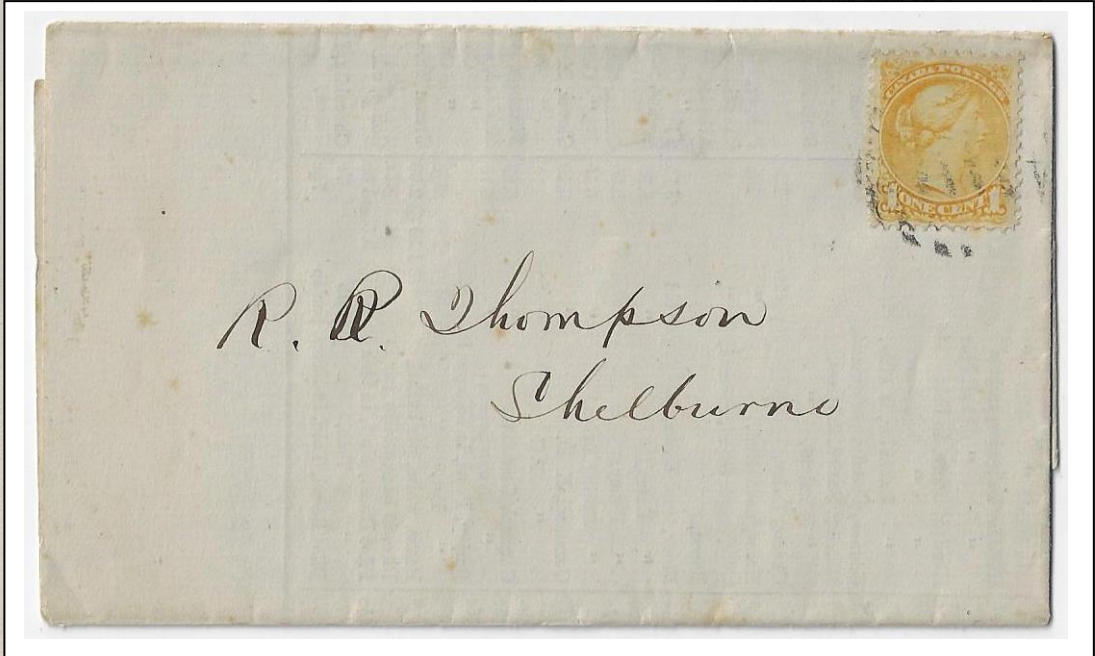 CANADA POSTAGE
1 ONE CENT 1
R. R. Thompson
Shelburne